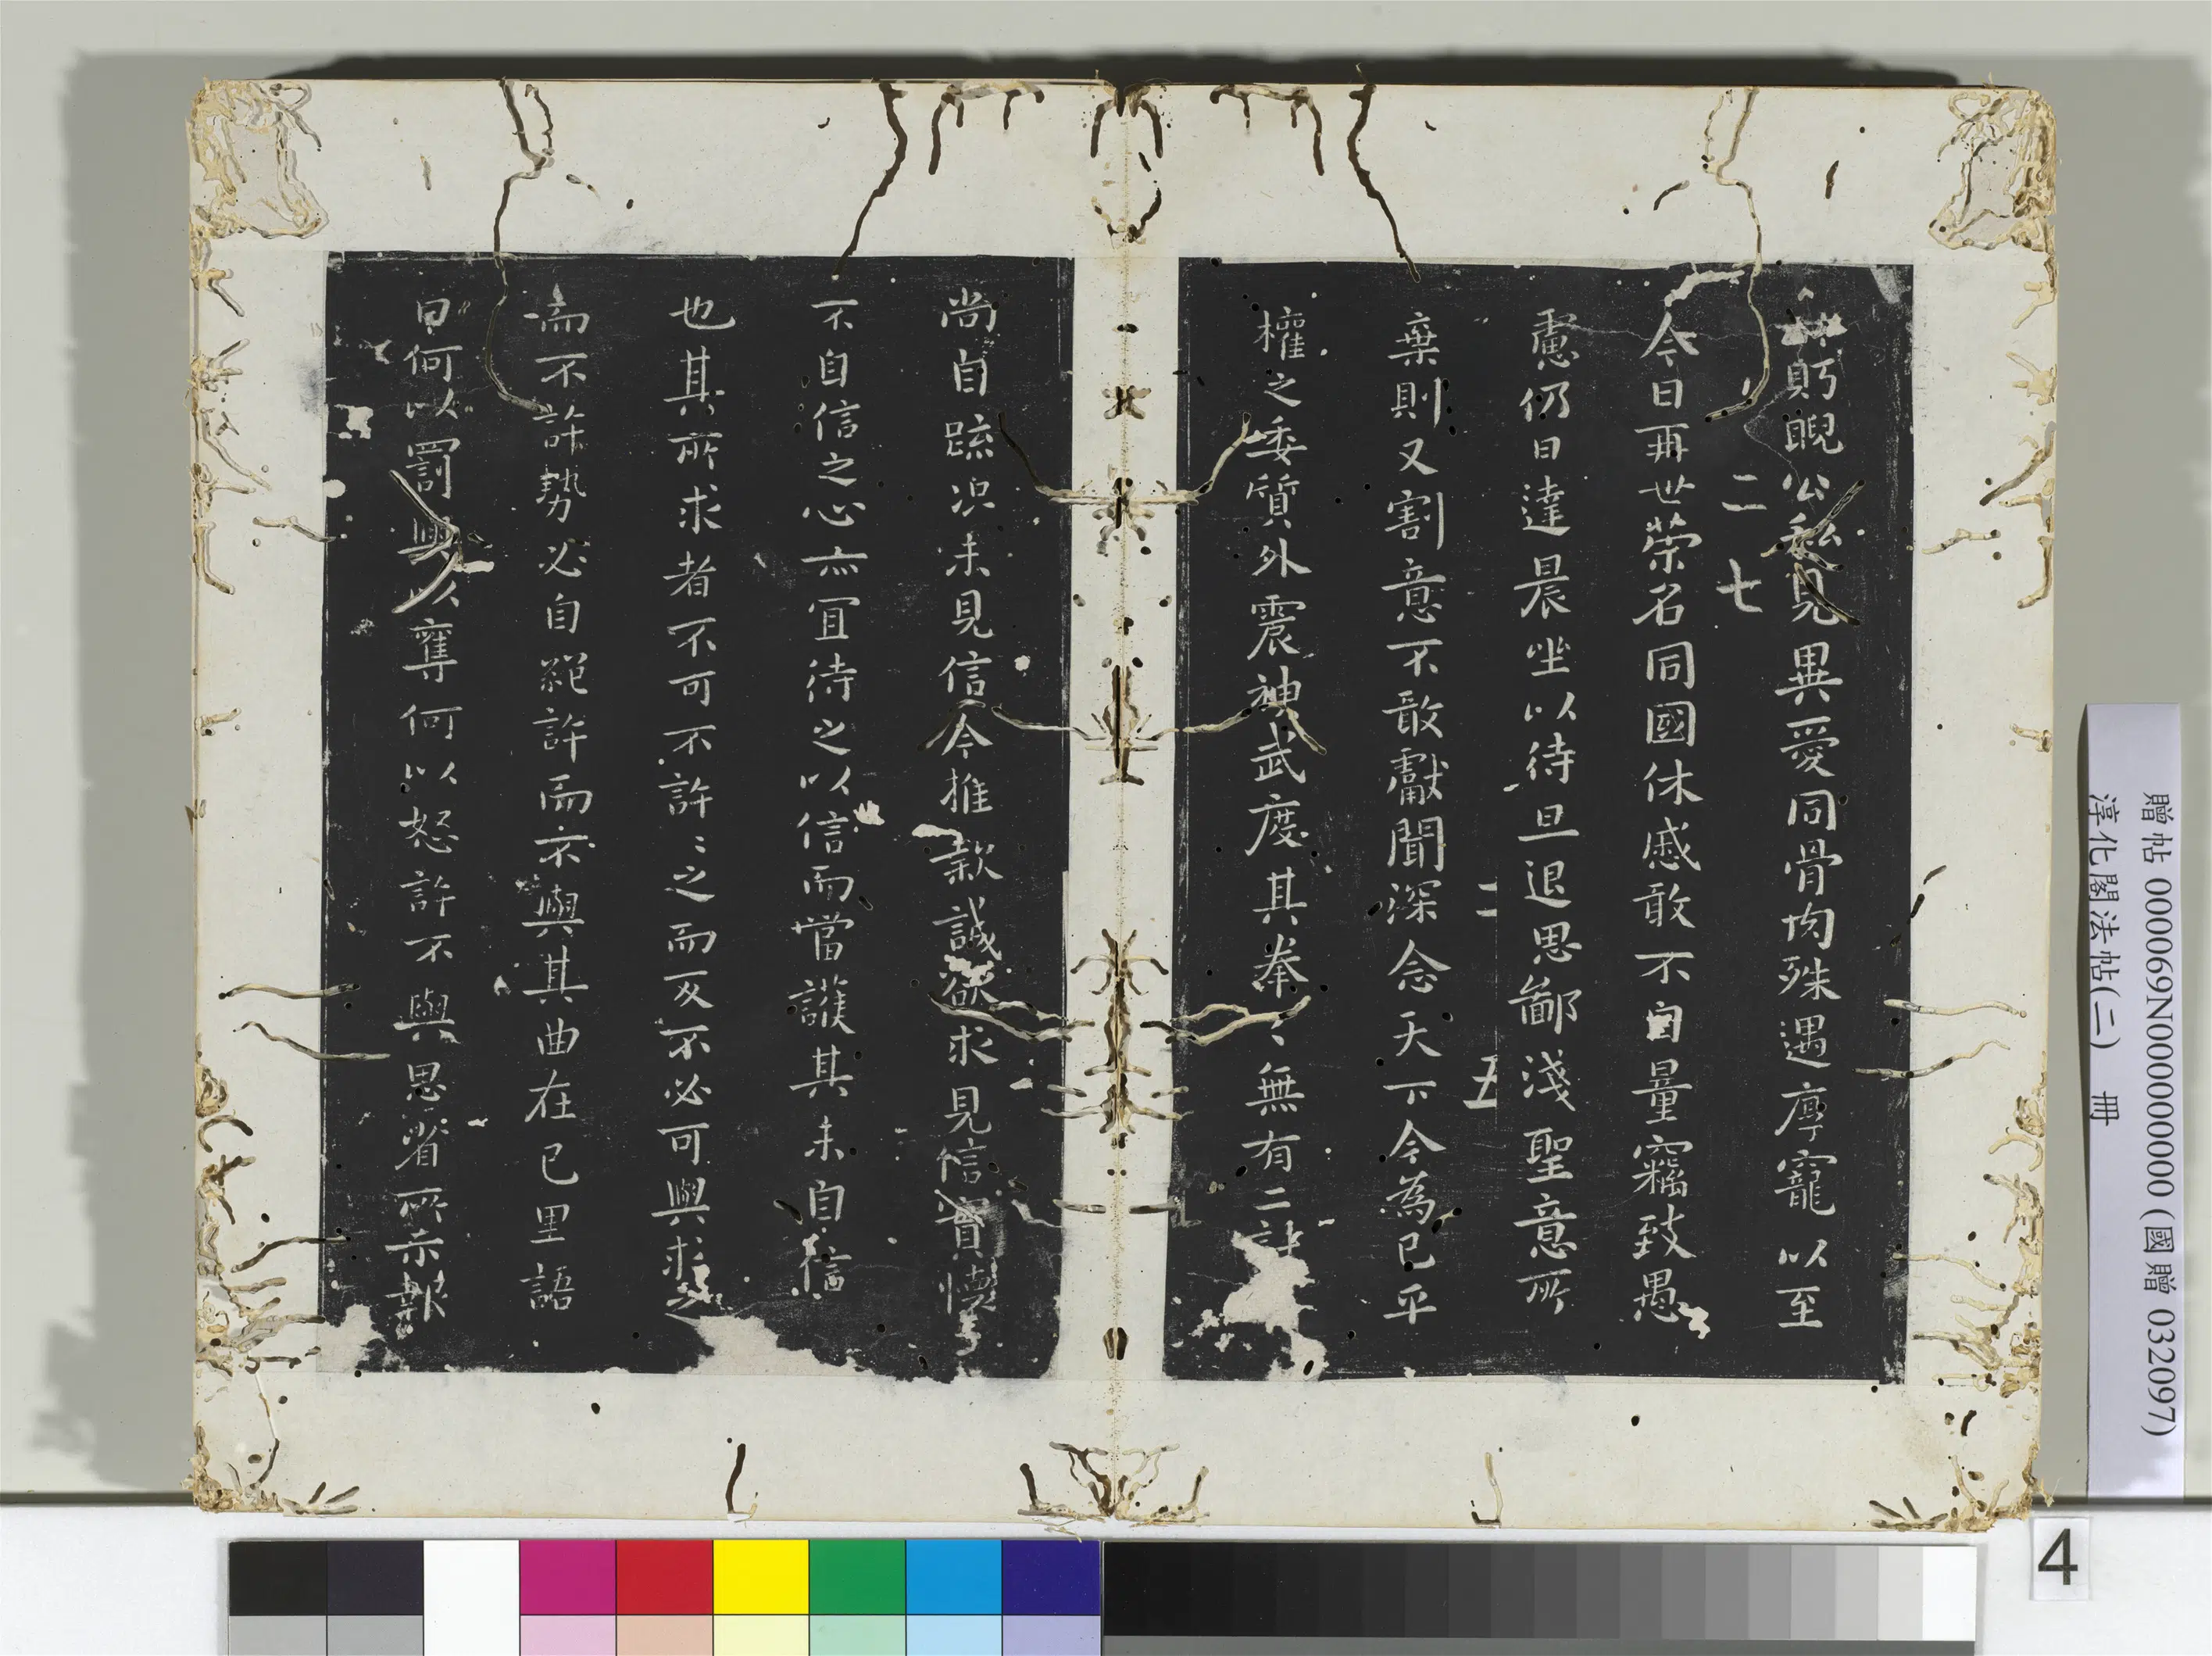 貺睨公私見異愛同骨肉殊遇厚寵以至
二 七
今日再世荣名同國休慼敢不自量竊致愚
慮仍日達晨坐以待旦退思鄙淺聖意所
二 五
棄則又割意不敢獻聞深念天下今為已平
權之委質外震神武度其拳〻無有二計
尚自疏況未見信今推款誠欲求見信實懐
不自信之心亦冝待之以信而當護其未自信
也其所求者不可不許〻之而反不必可與求之
而不許勢必自絕許而不與其曲在已里語
曰何以罰與以奪何以怒許不與思省所示報
贈帖 000069N000000000 (國贈 032097)
淳化閣法帖(二) 冊
4